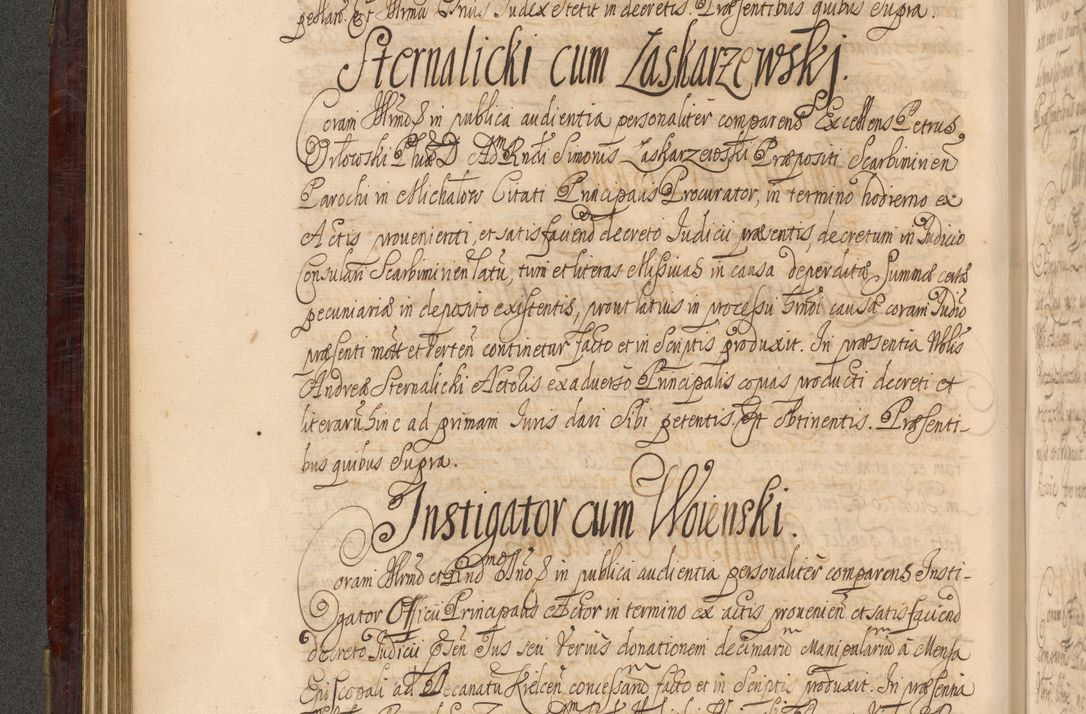 geslan. Et Illrmus Dnus Judex stetit in decretis. Præsentibus quibus supra.
Sternalicki cum Zaskarzewskj.
Coram Illrmo D in publica audientia personaliter comparens Excellens Petrus
Orłowski Phiæ D AdmRndi Simonis Zaskarzewski Præpositi Scarbimirien
Parochi in Michałow Citati Principalis Procurator, in termino hodierno ex
Actis provenienti, et satisfaciend decreto Judicii præsentis decretum in Judicio
Consulari Scarbimirien latū, tum et literas Missivas in causa deperditæ summæ certæ
pecuniariæ in deposito existentis, prout latius in processu hmōi causæ coram Judio
præsenti mott et verten continetur facto et in scriptis produxit. In præsentia Nblis
Andreæ Sternalicki Actoris ex adverso Principalis copias producti decreti et
literarū hinc ad primam Juris dari sibi petentis. Et obtinentis. Præsenti-
bus quibus supra.
Instigator cum Woienski.
Coram Illrmo et Rndmo Dno D in publica audientia personaliter comparens Insti-
gator Officii Principalis Actor in termino ex actis provenien et satisfaciend
decreto Judicii psen Jus seu verius donationem decimarum Manipularium à Mensa
Episcopali ad Decanatū Kielcen concessarum facto et in scriptis produxit. In præsentia